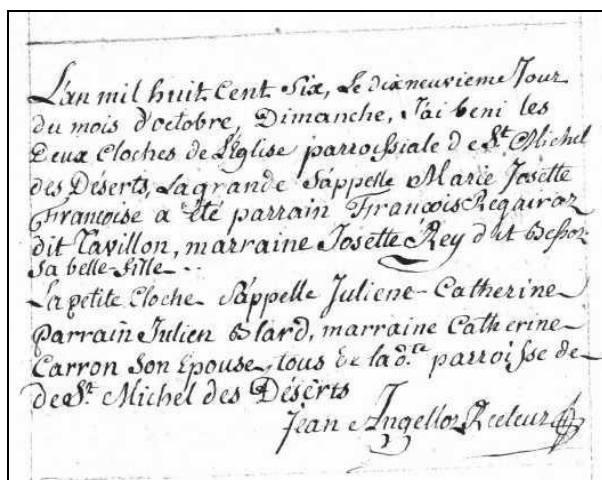 L'an mil huit Cent Six, Le dixneuvieme Jour
du mois d'octobre, Dimanche, J'ai beni les
Deux Cloches de L'Eglise parroissiale de St. Michel
des Déserts, La grande S'appelle Marie Josette
Francoise a été parrain Francois Regairaz
dit Tavillon, marraine Josette Rey dit
Sa belle-fille
La petite Cloche S'appelle Juliene-Catherine
Parrain Julien Blard, marraine Catherine
Carron Son Epouse, tous de la d.te parroisse de
de St. Michel des Déserts
Jean Angelloz Recteur